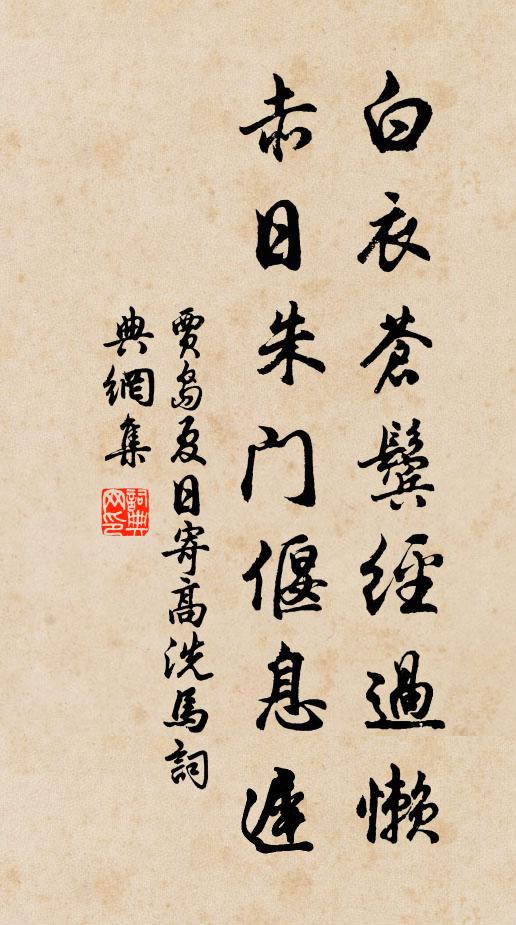 白衣蒼鬢經過懶
赤日朱門偃息遲
賈島夏日寄高洗馬詞
典網集
詞典
网印